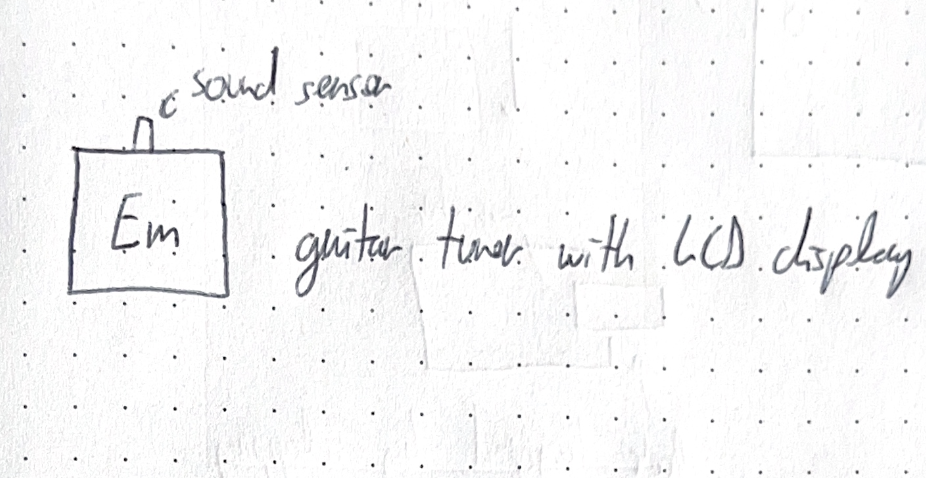 sound sensor
Em
guitar tuner with LCD display